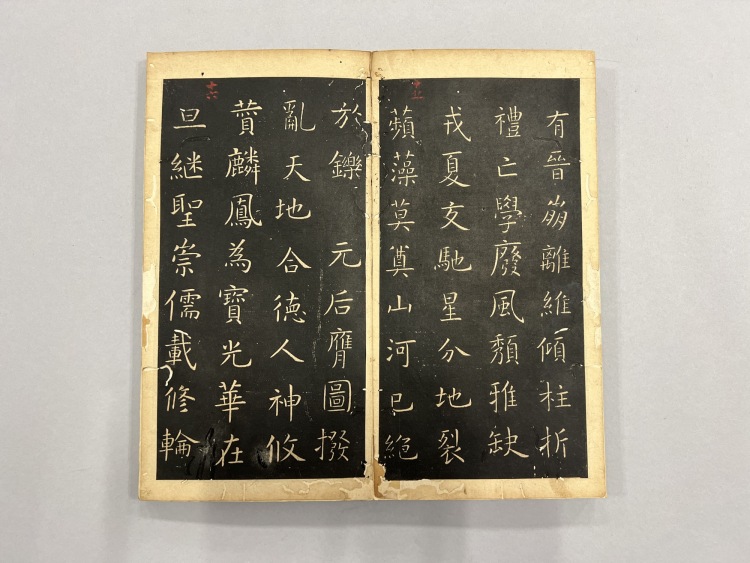 有晉崩離維傾柱折
禮亡學廢風頽雅缺
戎夏交馳星分地裂
蘋藻莫奠山河已絕
於鑠元后膺圖撥
亂天地合徳人神攸
賛麟鳳為寶光華在
旦継聖崇儒載修輪
十六